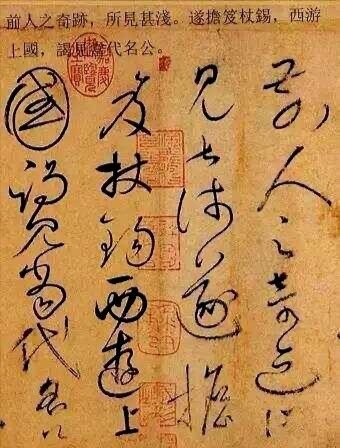 前人之奇跡，所見甚淺。遂擔笈杖錫，西游
上國，謁見當代名公。
前人之奇迹所
見甚淺遂擔
笈杖錫西遊上
國謁見當代名公
嘉慶御覽之寶